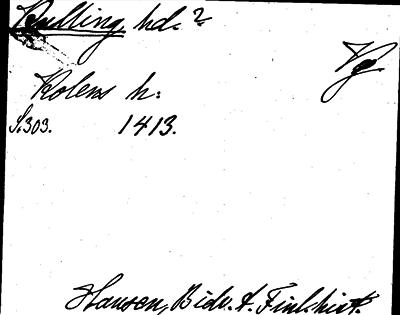 Bulling, hd. ?
Vg
Kolens h:
S. 303. 1413.
Hausen, Bidr. t. Finl. hist.